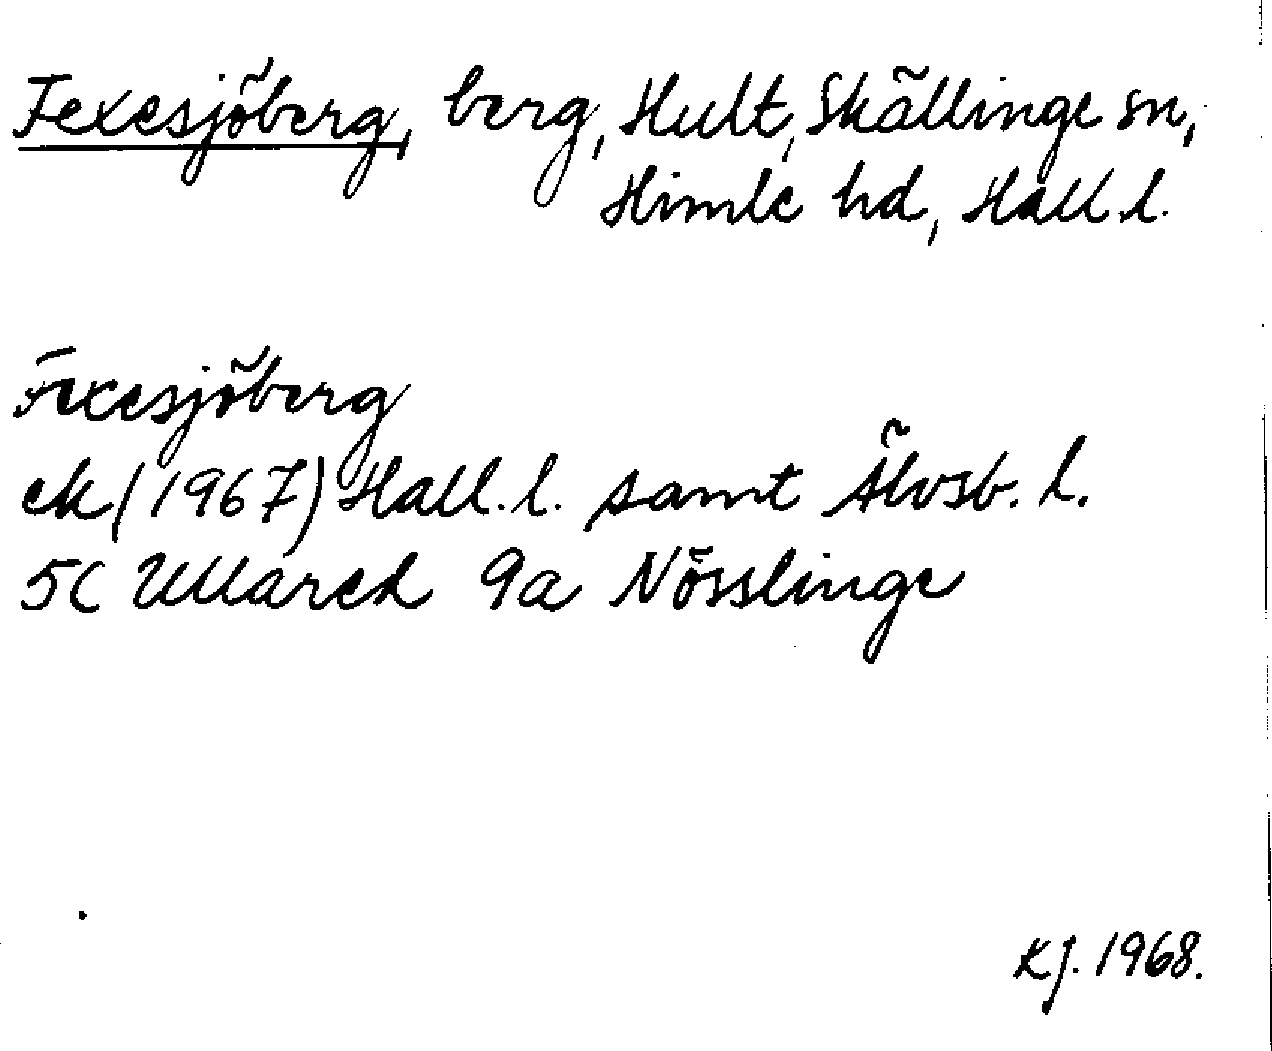 Fexesjöberg, berg, Hult, Skällinge sn,
Himle hd, Hall.l.
Fexesjöberg
ek (1967) Hall.l. samt Älvsb. l.
5C Ullared 9a Nösslinge
KJ. 1968.